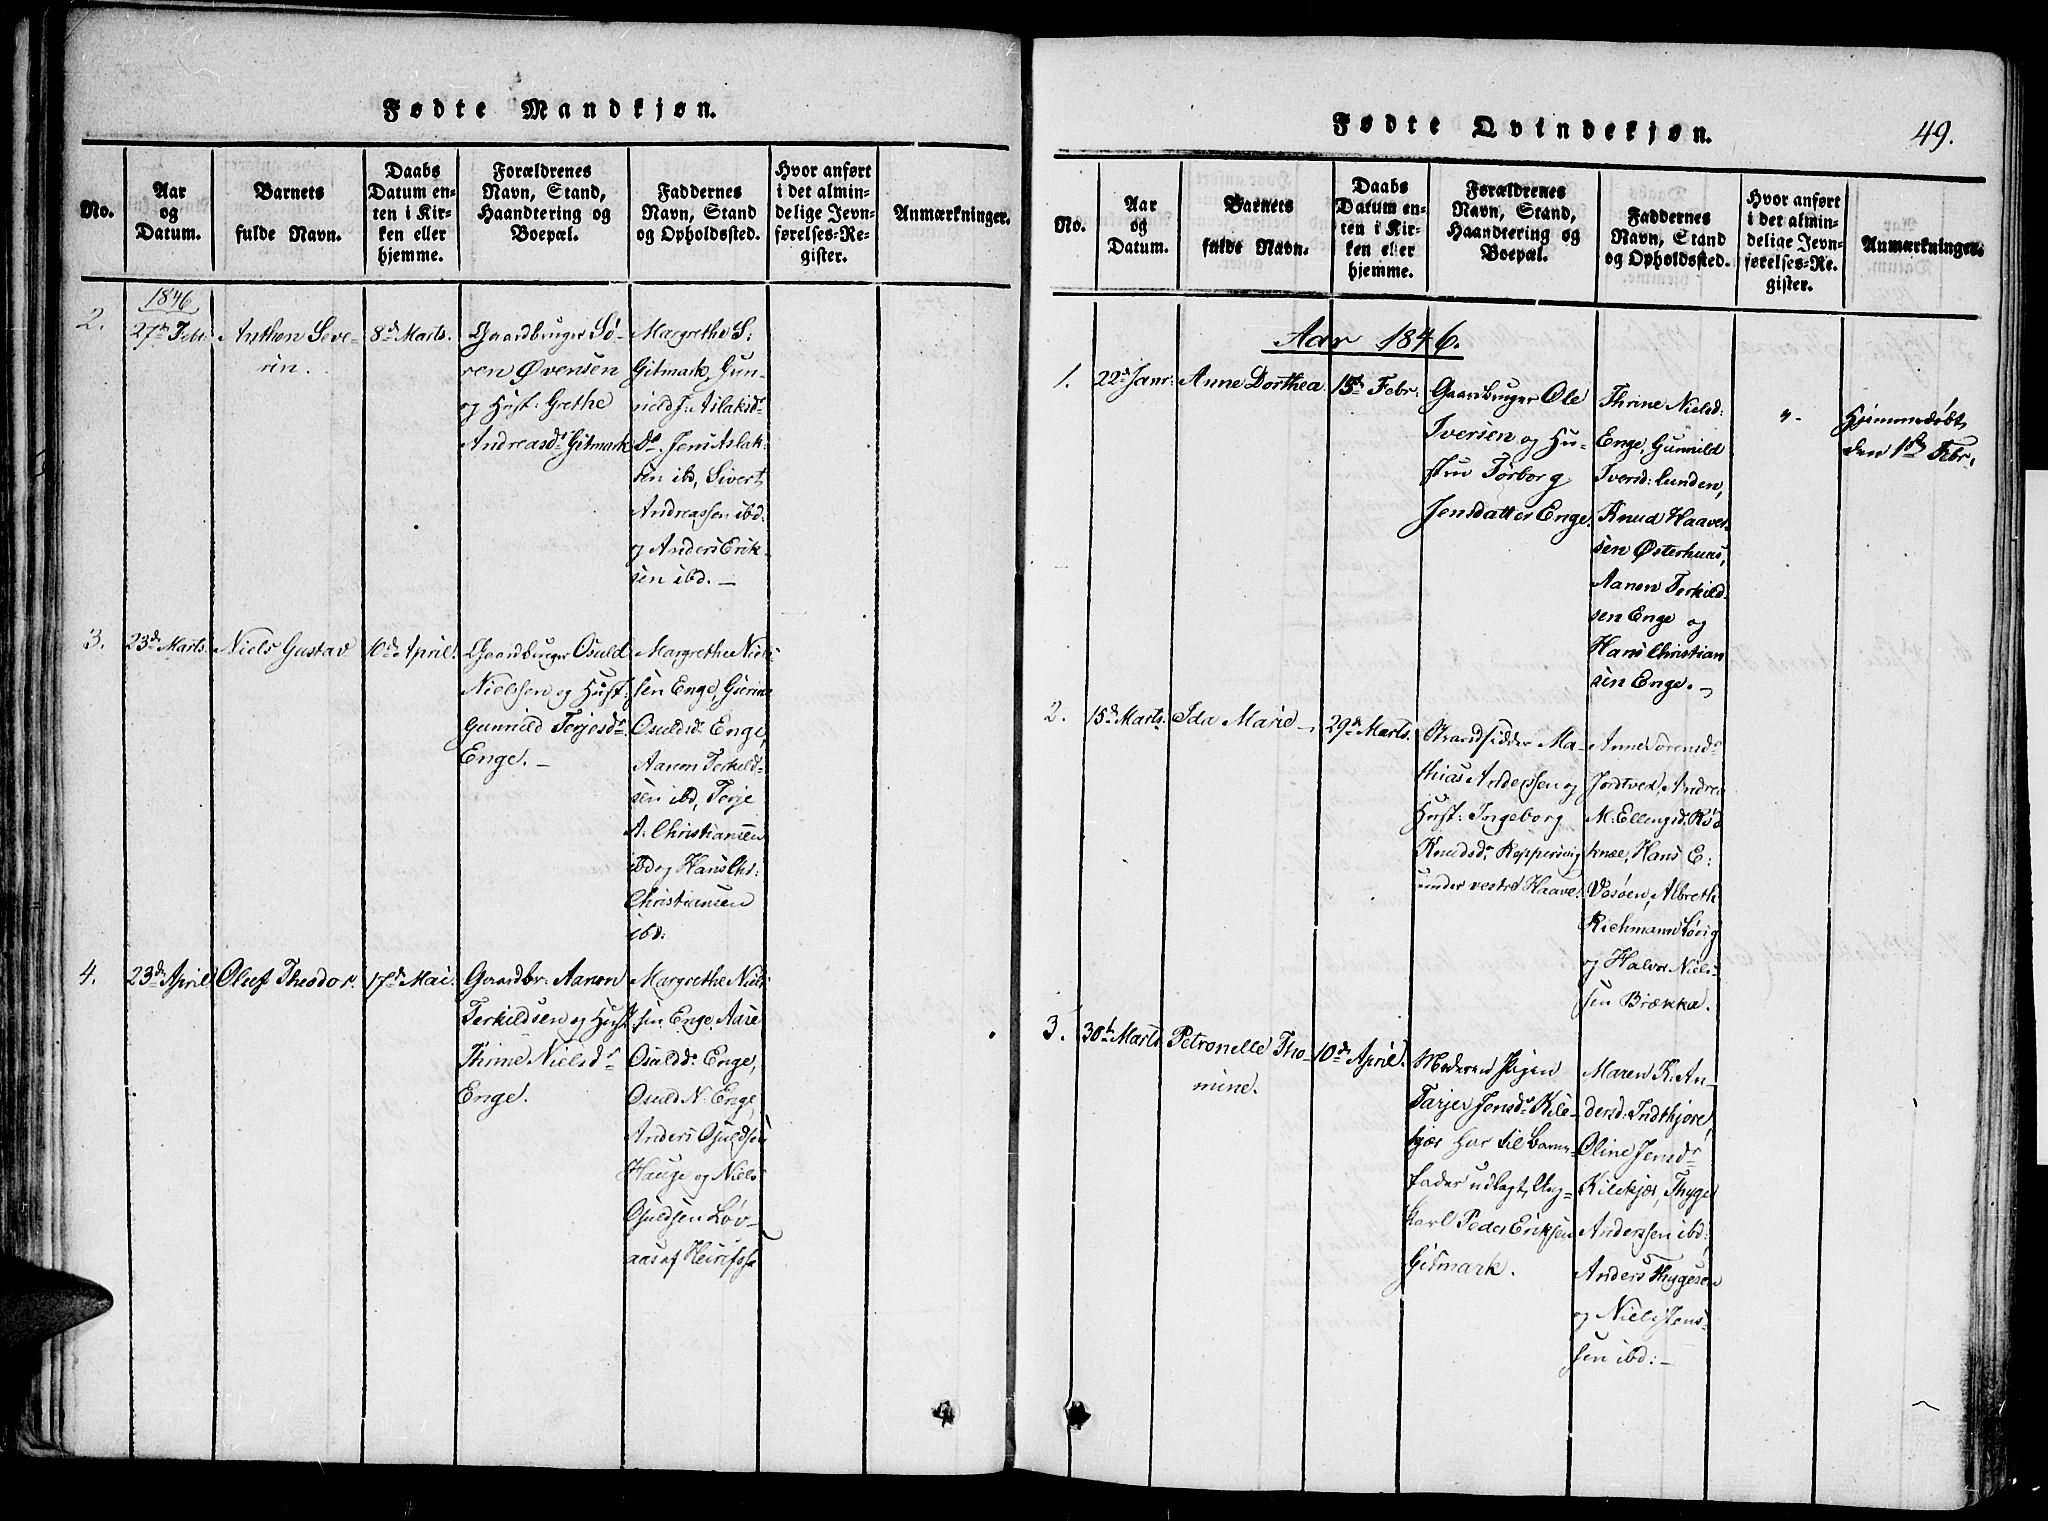 Fødte Mandkjøn.
No.
Aar
og
Datum.
Barnets
fulde Navn.
Daabs
Datum en-
ten i Kir-
ken eller
hjemme.
Forældrenes
Navn, Stand,
Haandtering og
Boepæl.
Faddernes
Navn, Stand
og Opholdssted.
Hvor anført
i det almin-
delige Jevn-
førelses-Re-
gister.
Anmærkninger.
1846
2.
27de Febr.
Anthon Seve-
rin.
8de Marts.
Gaardbruger Sø-
ren Øvensen
og Hust: Grethe
Andreasdr Gitmark
Margrethe S.
Gitmark, Gun-
nild J: Aslaksdr
Do. Jens Aslak-
sen ibd, Sivert
Andreassen ibd:
og Anders Erik-
sen ibd. —
3.
23de Marts.
Niels Gustav
10de April.
Gaardbruger Osuld
Nielssen og Hust:
Gunnild Terjesdr
Enge. —
Margrethe Niel-
sen Enge,
Osuldsdr Enge,
Aanon Terkild-
sen ibd, Terje
A. Christiansen
ibd og Hans Chr:
Christiansen
ibd:
4.
23de April
Oluf Theodor.
17de Mai.
Gaardbr: Aanon
Terkildsen og Hust
Thrine Nielsdr
Enge.
Margrethe Niel-
sen Enge, Aase
Osuldsdr Enge,
Osuld N: Enge,
Anders Osuldsen
Hauge og Niels
Osuldsen Løv-
aas af
Fødte Qvindekjøn.
49.
No.
Aar
og
Datum.
Barnets
fulde Navn.
Daabs
Datum en-
ten i Kir-
ken eller
hjemme.
Forældrenes
Navn, Stand,
Haandtering og
Boepæl.
Faddernes
Navn, Stand
og Opholdssted.
Hvor anført
i det almin-
delige Jevn-
førelses-Re-
gister.
Anmærkninger.
Aar 1846.
1.
22de Janr:
Anne Dorthea
15de Febr:
Gaardbruger Ole
Iversen og Hu-
stru Torborg
Jensdatter Enge.
Thrine Nielsd:
Enge, Gunnild
Iversd: Lunden,
Knud Haaver-
sen Østerhuus,
Aanon Terkild-
sen Enge og
Hans Christian
sen Enge. —
" -
Hjemmedøbt
den 1ste Febr.
2.
15de Marts.
Ida Marie —
29de Marts.
Strandsidder Ma-
thias Anderssen og
Hust: Ingeborg
Knudsdr Koppersvig
under vestre Haave.
Anne Sørensdr
Jortved, Andrea
M: Ellingsd: Rød
knæl, Hans E:
Vosøen, Albreth
Richmann Løvig
og Halvor Niel-
sen Brække.
3.
30te Marts
Petronelle Tho-
mine.
10de April.
Moderen Pigen
Tarjer Jensdr Kile-
kjær har til Barne-
fader udlagt Ung-
karl Peder Eriksen
Gitmark.
Maren K: An-
dersd: Indthjore,
Oline Jensdr
Kilekjær, Thyge
Anderssen ibd:,
Anders Thygesen
og Niels Jens-
sen ibd: —